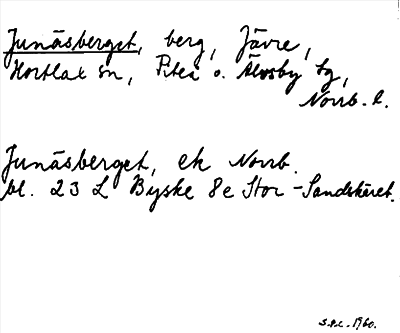 Junäsberget, berg, Jävre,
Hortlax sn, Piteå o. Älvsby tg,
Norrb. l.
Junäsberget, ek Norrb.
bl. 23 L Byske 8e Stor-Sandskäret.
S.P.L. 1960.